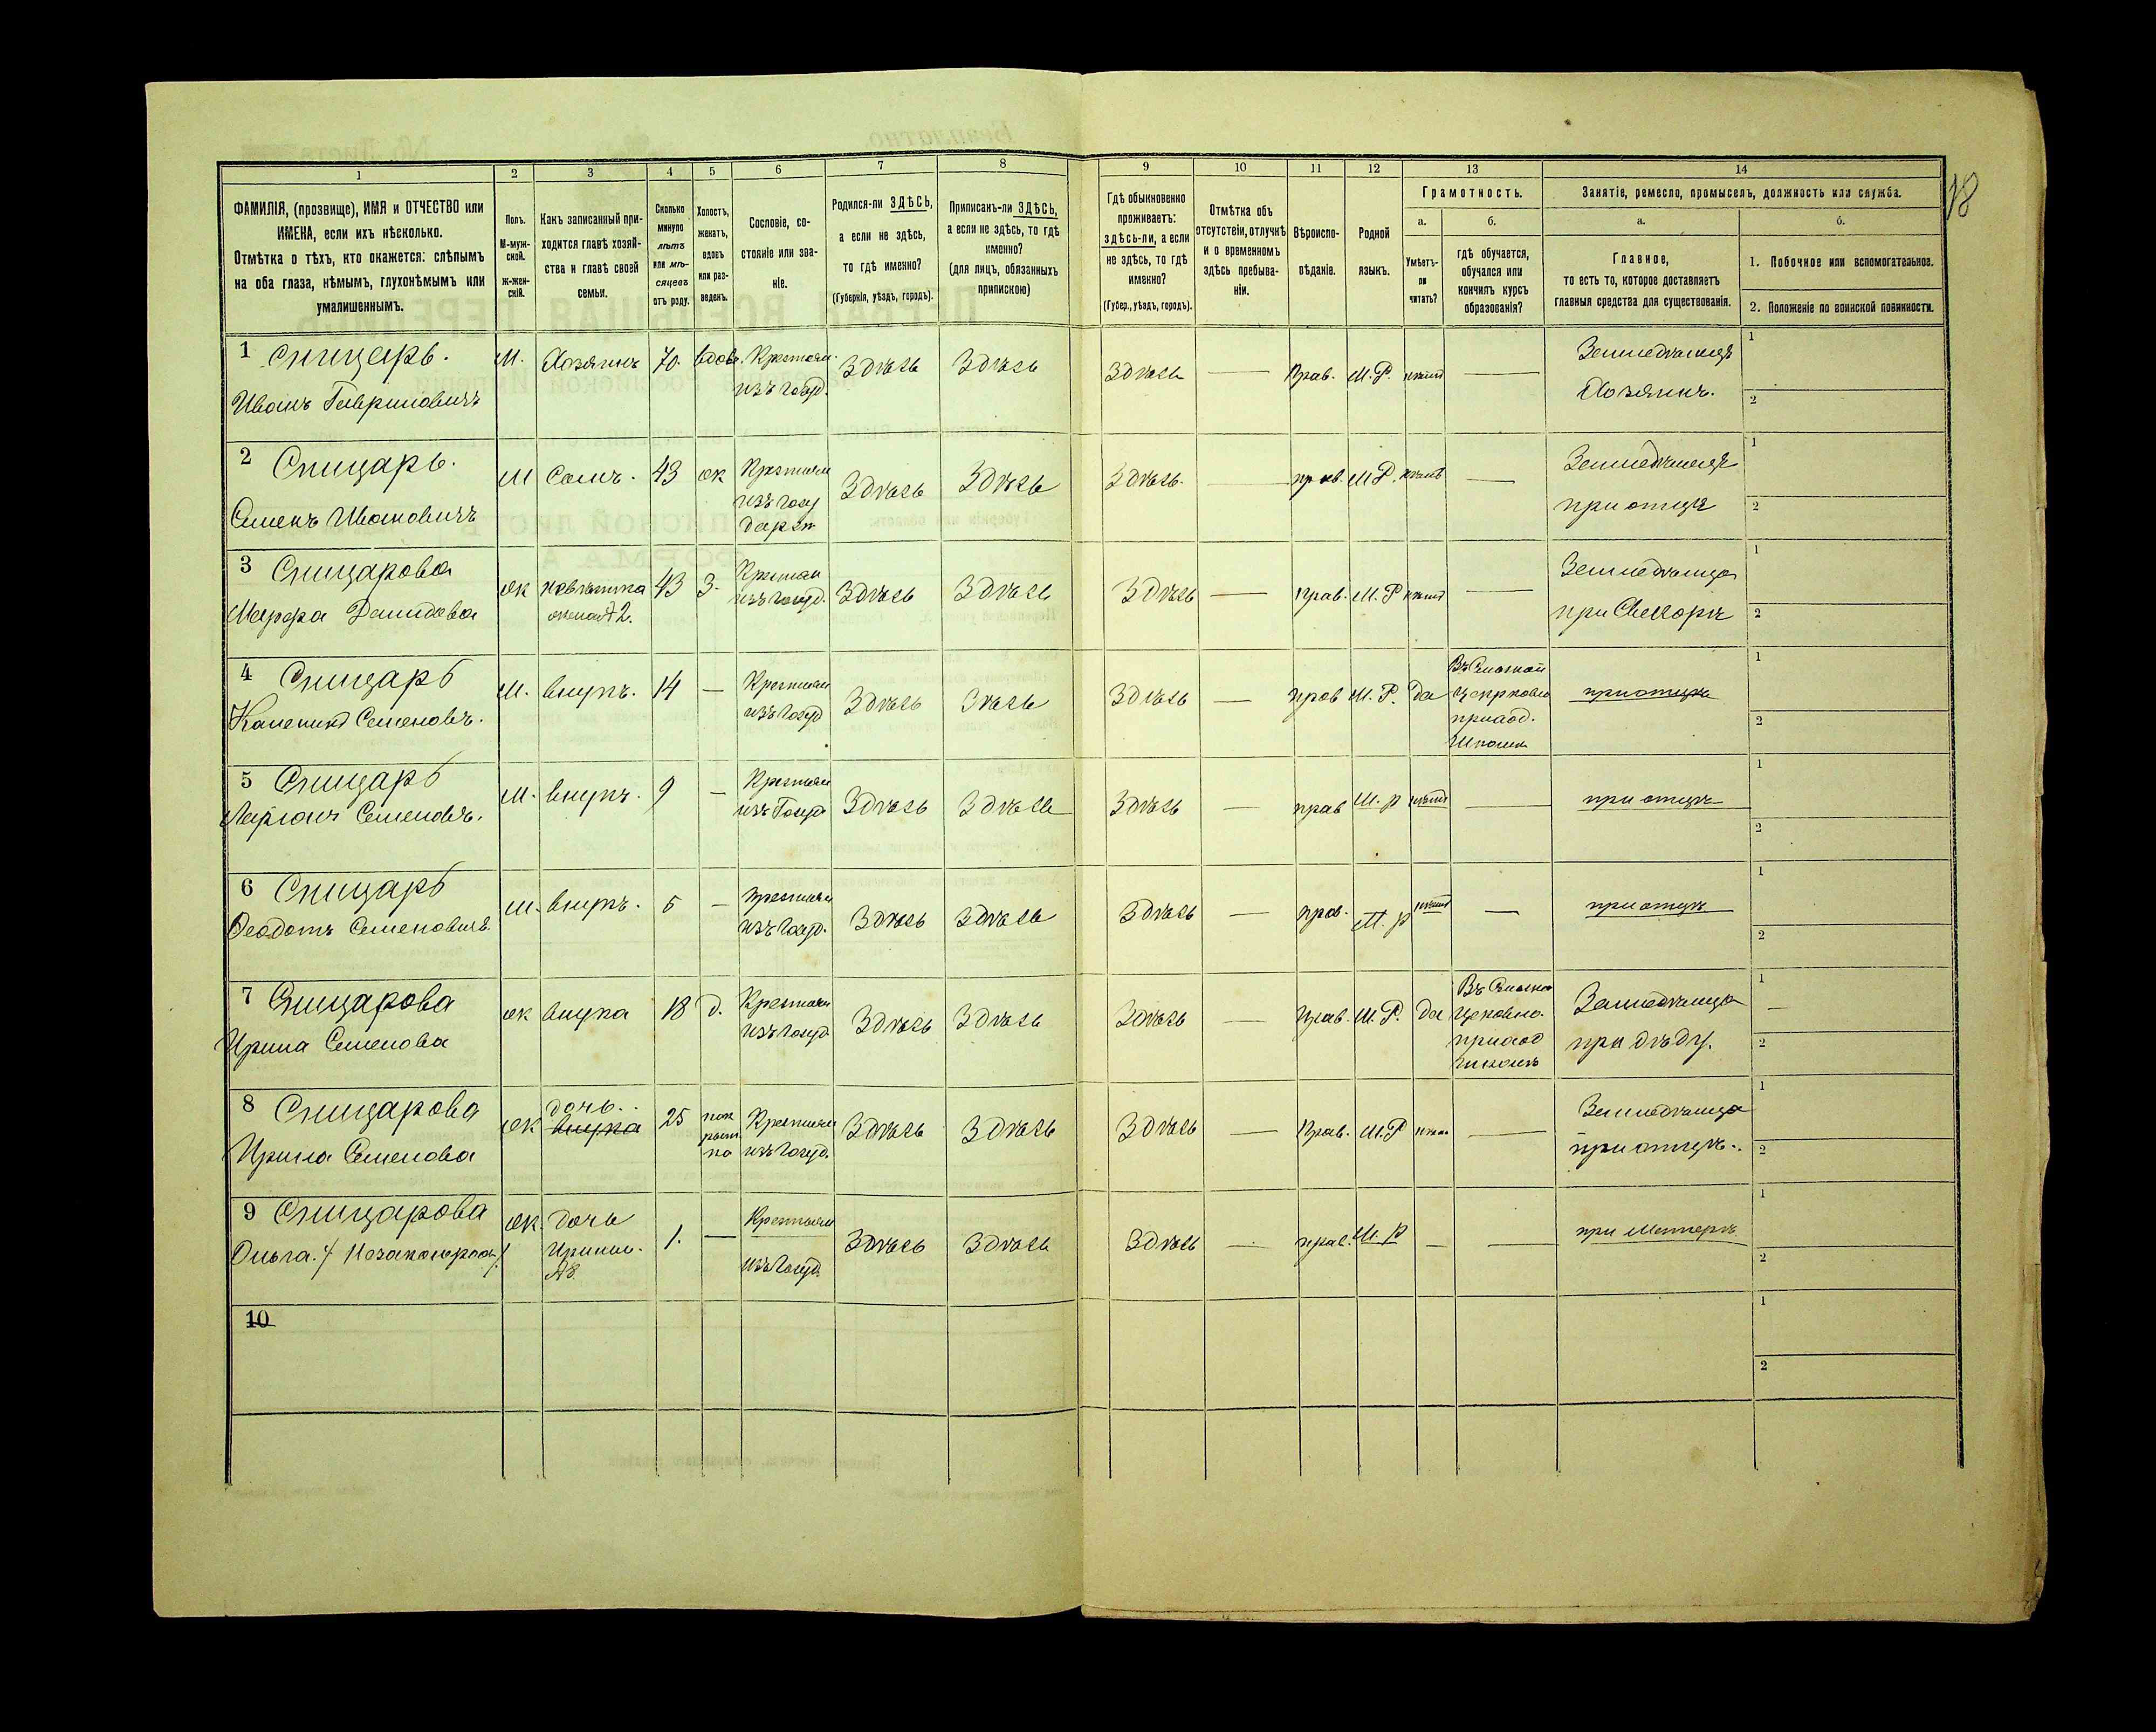 18
1 2 3 4 5 6 7 8 9 10 11 12 13 14
ФАМИЛІЯ, (прозвище), ИМЯ и ОТЧЕСТВО или
ИМЕНА, если ихъ нѣсколько.
Отмѣтка о тѣхъ, кто окажется: слѣпымъ
на оба глаза, нѣмымъ, глухонѣмымъ или
умалишеннымъ.
Полъ.
М-муж-
ской.
Ж-жен-
скій.
Какъ записанный при-
ходится главѣ хозяй-
ства и главѣ своей
семьи.
Сколько
минуло
лѣтъ
или мѣ-
сяцевъ
отъ роду.
Холостъ,
женатъ,
вдовъ
или раз-
веденъ.
Сословіе, со-
стояніе или зва-
ніе.
Родился-ли ЗДѢСЬ,
а если не здѣсь,
то гдѣ именно?
(Губернія, уѣздъ, городъ).
Приписанъ-ли ЗДѢСЬ,
а если не здѣсь, то гдѣ
именно?
(для лицъ, обязанныхъ
припискою)
Гдѣ обыкновенно
проживаетъ:
здѣсь-ли, а если
не здѣсь, то гдѣ
именно?
(Губер., уѣздъ, городъ).
Отмѣтка объ
отсутствіи, отлучкѣ
и о временномъ
здѣсь пребыва-
ніи.
Вѣроиспо-
вѣданіе.
Родной
языкъ.
Грамотность.
а.
Умѣетъ-
ли
читать?
б.
гдѣ обучается,
обучался или
кончилъ курсъ
образованія?
Занятіе, ремесло, промыселъ, должность или служба.
а.
Главное,
то есть то, которое доставляетъ
главныя средства для существованія.
б.
1. Побочное или вспомогательное.
2. Положеніе по воинской повинности.
1 Спицарь. М. Хозяинъ 70. вдов. Крестьян. Здѣсь Здѣсь Здѣсь — Прав. М.Р. нѣтъ — Земледѣлецъ 1
Иванъ Гавриловичъ изъ Госуд. Хозяинъ. 2
2 Спицарь. М Сынъ. 43 ж Крестьян Здѣсь Здѣсь Здѣсь — прав. М.Р. нѣтъ — Земледѣлецъ 1
Семенъ Ивановичъ изъ Госу при отцѣ 2
дарст
3 Спицарова Ж невѣстка 43 З. Крестьян Здѣсь Здѣсь Здѣсь — Прав. М.Р нѣтъ — Земледѣлица 1
Марфа Демидова жена №2. изъ Госуд. при Свекорѣ 2
4 Спицарь М. внукъ. 14 — Крестьян Здѣсь Здѣсь — прав М.Р. да Церковно при отцѣ 1
Семеновъ. изъ Госуд приход. 2
Школѣ
5 Спицарь М. внукъ. 9 — Крестьян Здѣсь Здѣсь Здѣсь — прав М.р нѣтъ — при отцѣ 1
Семеновъ. изъ Госуд 2
6 Спицарь М. внукъ. 5 — Крестьян Здѣсь Здѣсь Здѣсь — прав. М.р нѣтъ — при отцѣ 1
Ѳеодотъ Семеновичъ. изъ Госуд. 2
7 Спицарова Ж внука 18 д. Крестьян Здѣсь Здѣсь Здѣсь — Прав. М.Р. да Земледѣлица 1 —
Ирина Семенова изъ Госуд. приход при дѣду. 2
8 Спицарова Ж дочь.. внука 25 пок Крестьян Здѣсь Здѣсь Здѣсь — Прав. М.Р — Земледѣлица 1
Ирина Семенова рыт ка изъ Госуд. при отцѣ.. 2
9 Спицарова Ж. дочь 1. — Крестьян Здѣсь Здѣсь Здѣсь — прав. М.р — — при Матерѣ 1
Ольга. Ирины. №8 изъ Госуд. 2
10 1
2